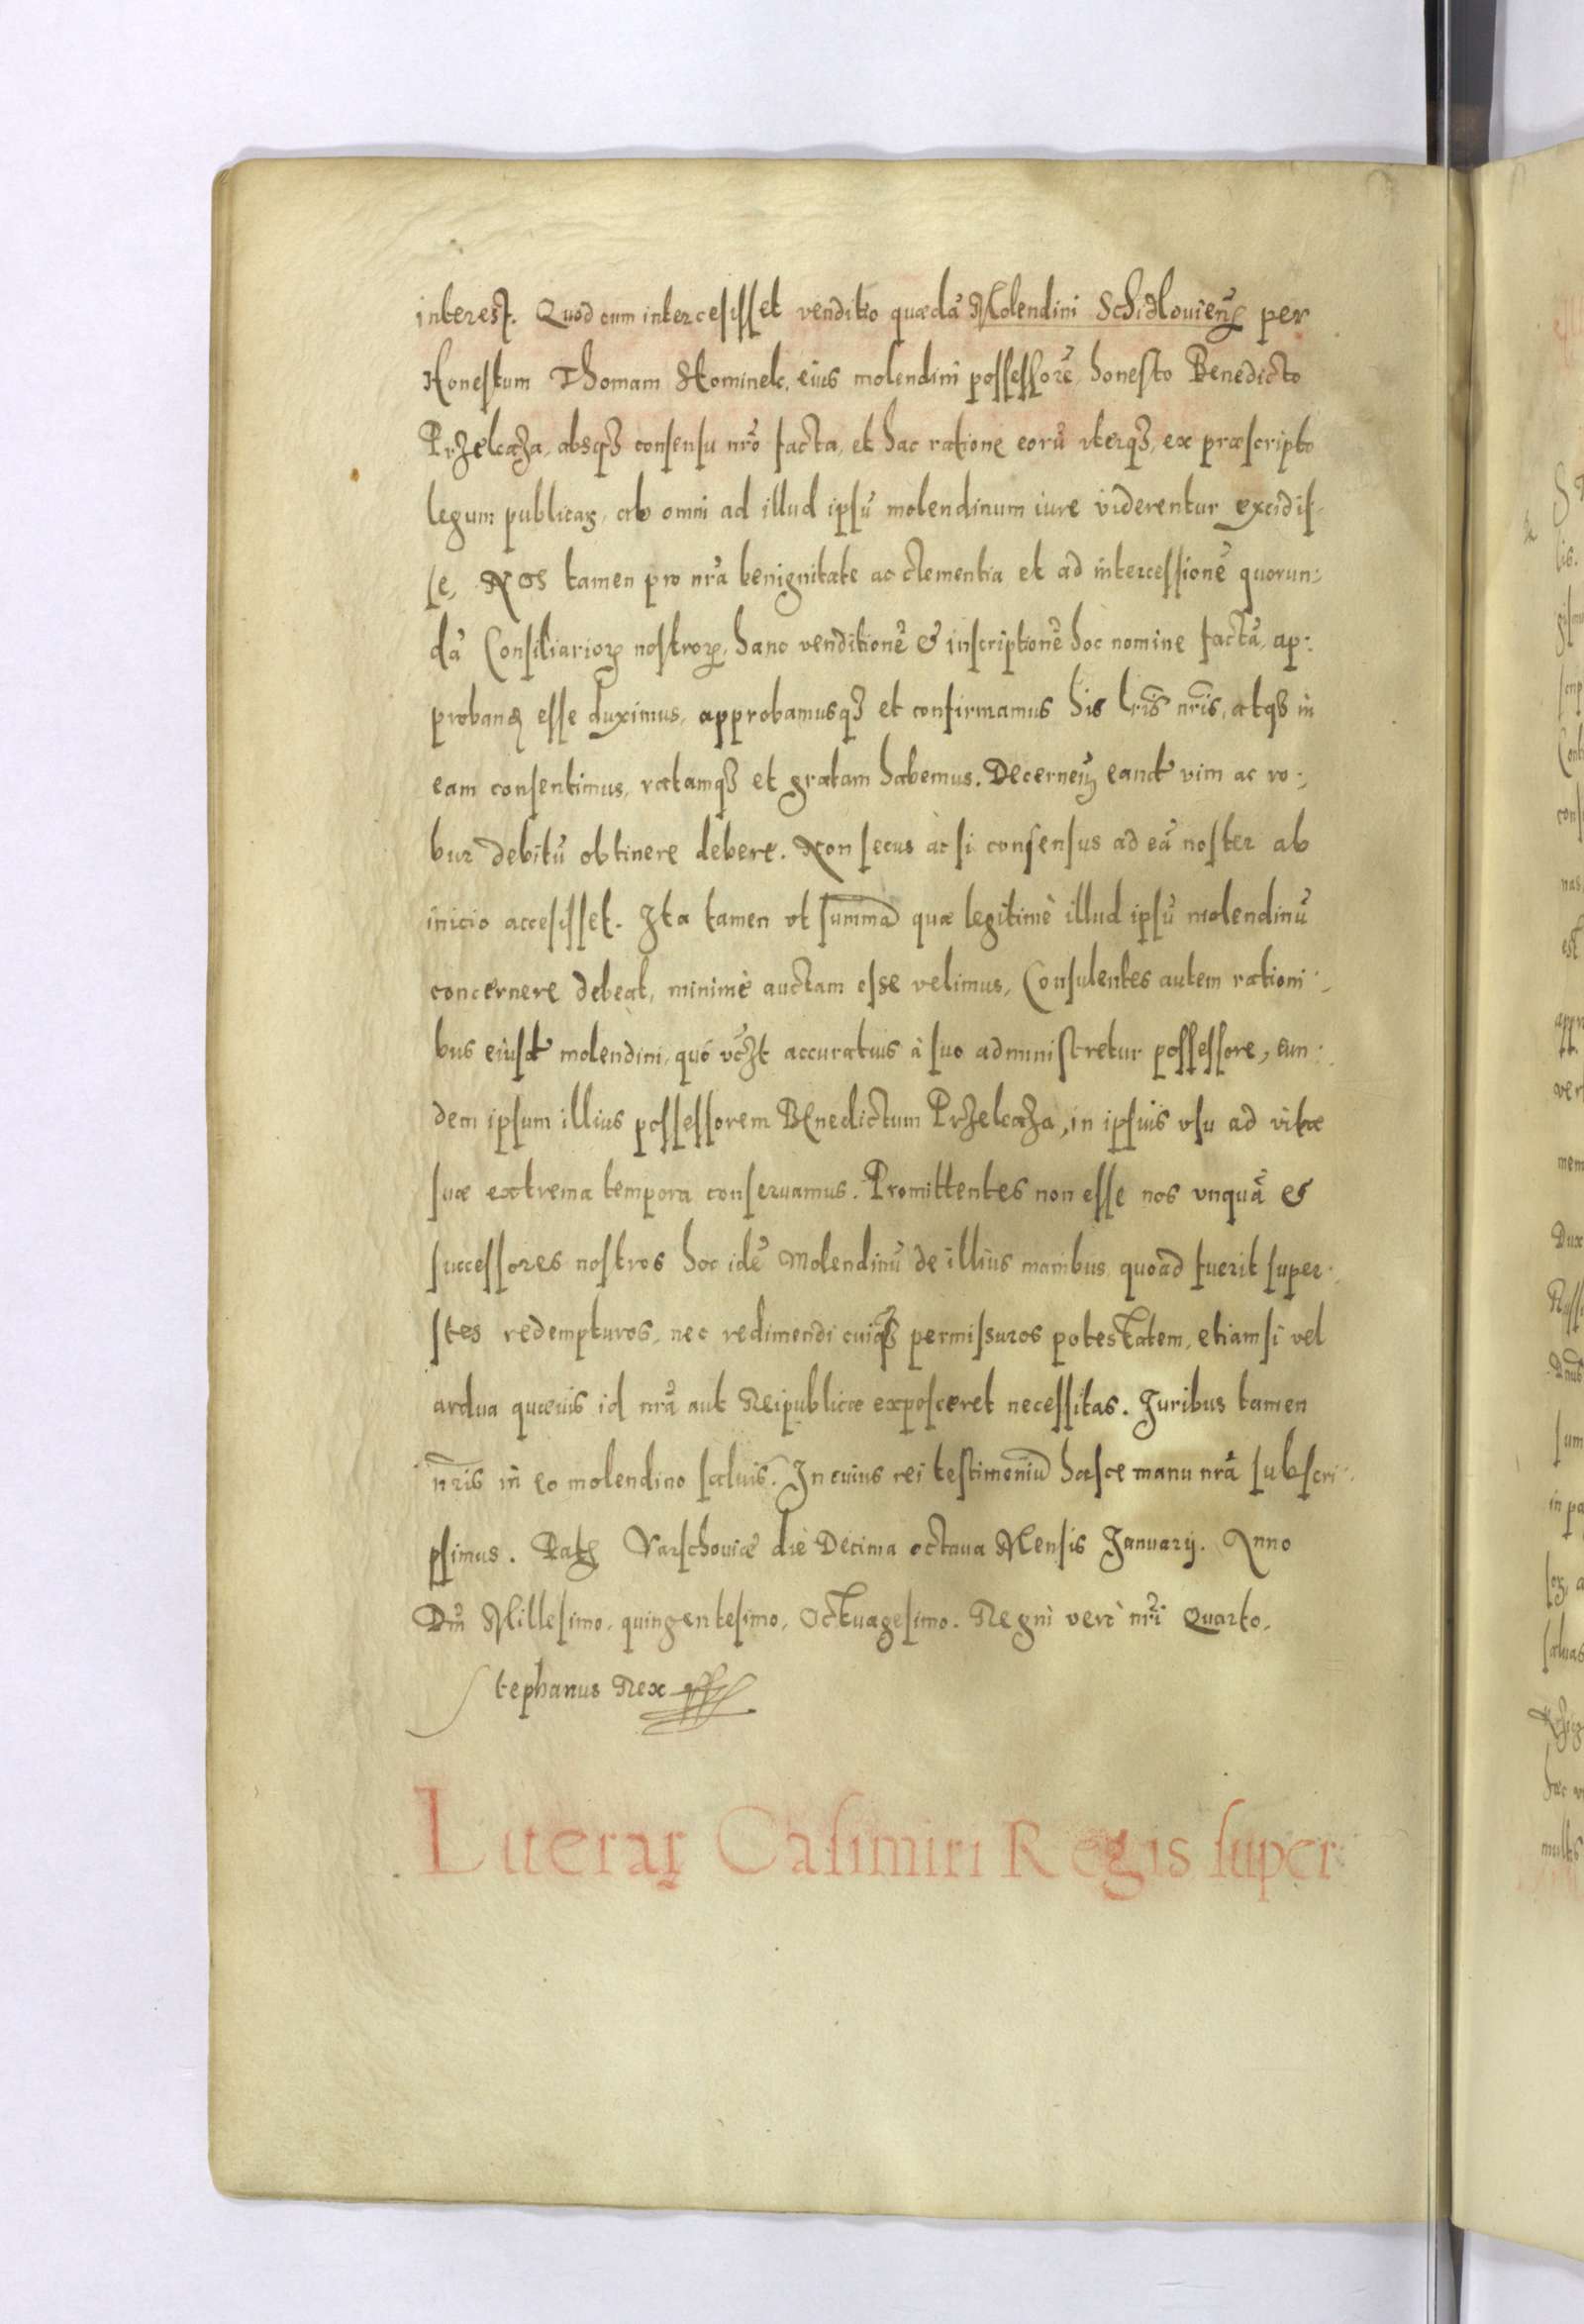 interest. Quod cum intercesisset venditio quædã Molendini Schidlouieñ per
Honestum Thomam Kominek, eius molendini possessorẽ, honesto Benedicto
Przelcaza, absqꝫ consensu nr̃o facta, et hac ratione eorũ vterqꝫ, ex præscripto
legum publicaꝝ, ab omni ad illud ipsũ molendinum iure viderentur excidis-
se, Nos tamen pro nr̃a benignitate ac clementia et ad intercessionẽ quorun:
dã Consiliarioꝝ nostroꝝ, hanc venditionẽ & inscriptionẽ hoc nomine factã, ap:
probanď esse duximus, approbamusqꝫ et confirmamus his lr̃is nr̃is, atqꝫ in
eam consentimus, ratamqꝫ et gratam habemus. Decerneñ eand̃ vim ac ro:
bur debitũ obtinere debere. Non secus ac si consensus ad eã noster ab
inicio accesisset. Ita tamen vt summã quæ legitimè illud ipsũ molendinũ
concernere debeat, minimè auctam esse velimus, Consulentes autem rationi:
bus eiusd̃ molendini, quó vꝫt accuratius à suo administretur possessore, eun:
dem ipsum illius possessorem Benedictum Przelcaza, in ipsius vsu ad vitæ
suæ extrema tempora conseruamus. Promittentes non esse nos vnquã &
successores nostros hoc idẽ Molendinũ de illius manibus quoad fuerit super:
stes redempturos, nec redimendi cuiqꝫ permissuros potestatem, etiamsi vel
ardua quæuis id nr̃a aut Reipublicæ exposceret necessitas. Juribus tamen
nr̃is in eo molendino saluis. In cuius rei testimoniũ hasce manu nr̃a subscri:
psimus. Datꝫ Varschouiæ die Decima octaua Mensis Januarij. Anno
Dñi Millesimo, quingentesimo, Octuagesimo. Regni verò nr̃i Quarto.
Stephanus Rex
Literaꝝ Casimiri Regis super